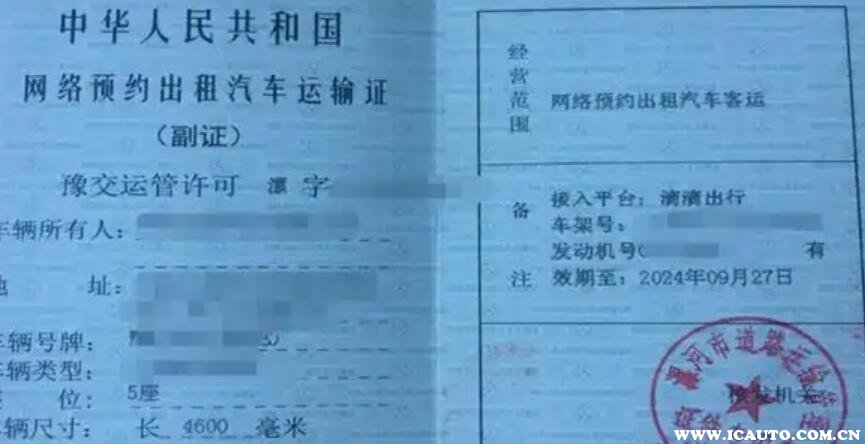 中华人民共和国
网络预约出租汽车运输证
（副证）
豫交运管许可 漯 字
车辆所有人：
地 址：
车辆号牌：
车辆类型：
座 位：5座
车辆尺寸： 长 4600 毫米
经营范围
网络预约出租汽车客运
备注
接入平台：滴滴出行
车架号：
发动机号 有
效期至：2024年09月27日
漯河市道路运输
核发机关
www.icauto.com.cn